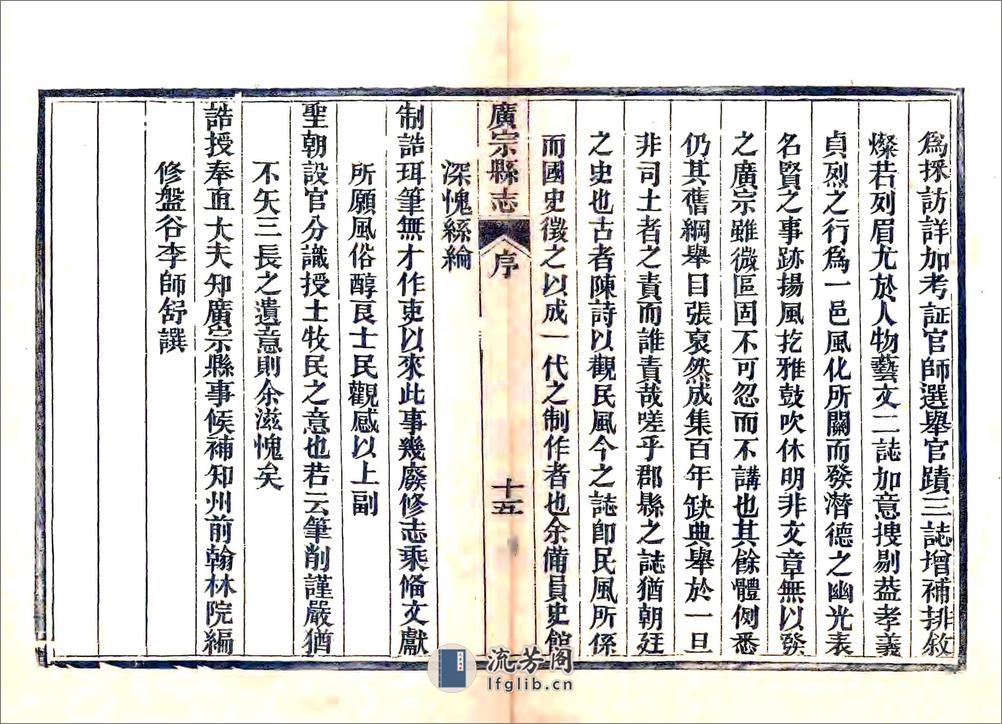 爲採訪詳加考証官師選舉官蹟三誌增補排敘
燦若列眉尤於人物藝文二誌加意搜剔益孝義
貞烈之行爲一邑風化所關而發潛德之幽光表
名賢之事跡揚風扢雅鼓吹休明非文章無以發
之廣宗雖微區固不可忽而不講也其餘體例悉
仍其舊綱舉目張裒然成集百年缺典舉於一旦
非司土者之責而誰責哉嗟乎郡縣之誌猶朝廷
之史也古者陳詩以觀民風今之誌即民風所係
而國史徵之以成一代之制作者也余備員史館
廣宗縣志 序 十五
深愧絲綸
制誥珥筆無才作吏以來此事幾廢修志乘脩文獻
所願風俗醇良士民觀感以上副
聖朝設官分識授土牧民之意也若云筆削謹嚴猶
不矢三長之遺意則余滋愧矣
誥授奉直大夫知廣宗縣事候補知州前翰林院編
修盤谷李師舒譔
流芳阁
lfglib.cn